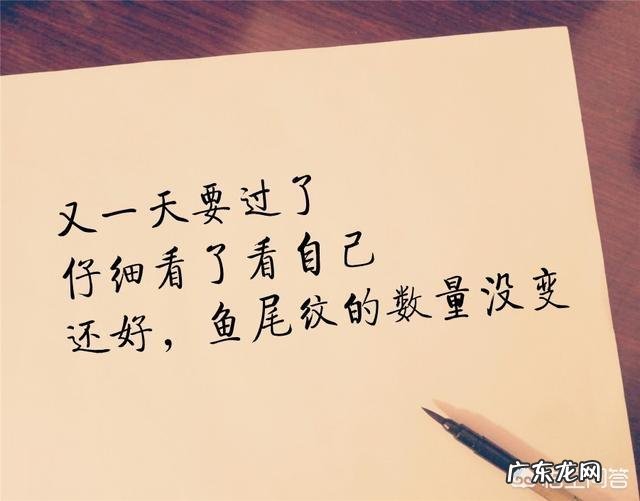 又一天要过了
仔细看了看自己
还好，鱼尾纹的数量没变
广东龙网